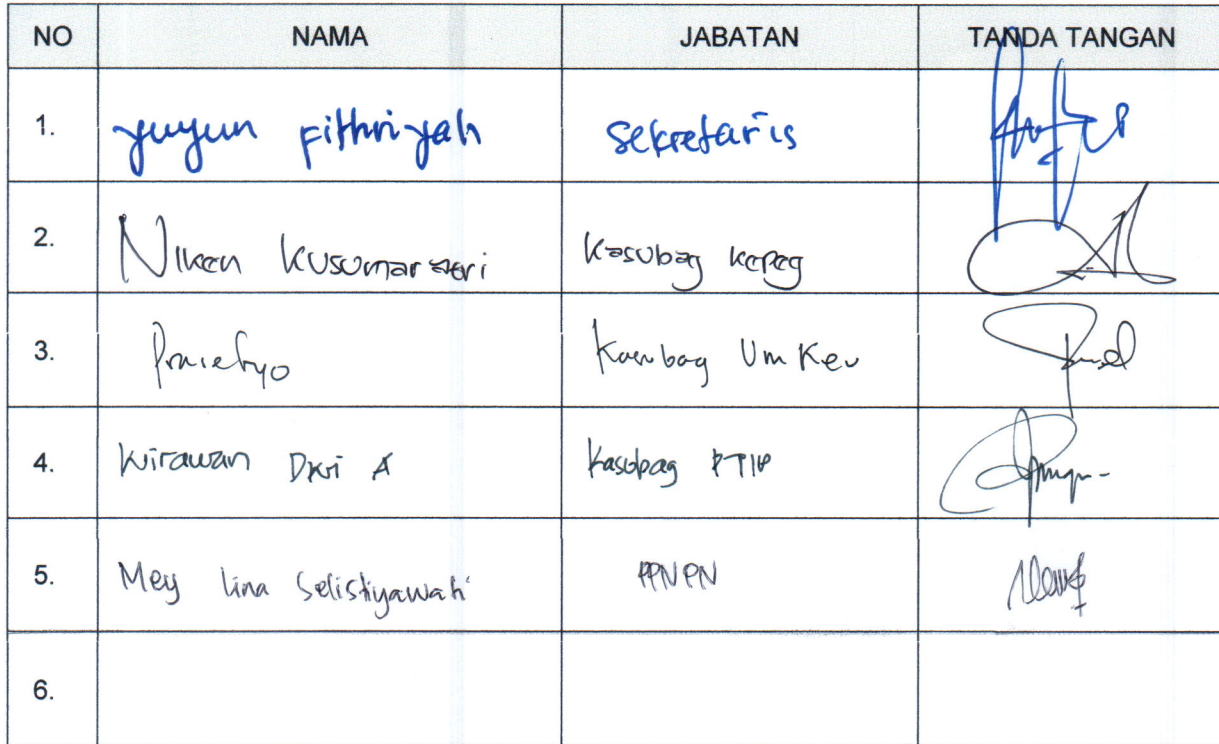 NO NAMA JABATAN TANDA TANGAN
1. yuyun Fithriyah Sekretaris
2. Niken Kusumar Kasubag Kepeg
3. Kasubag Um Keu
4. Wirawan Dwi A Kasubag PTIP
5. Mey Lina Selistiyawati PPNPN
6.